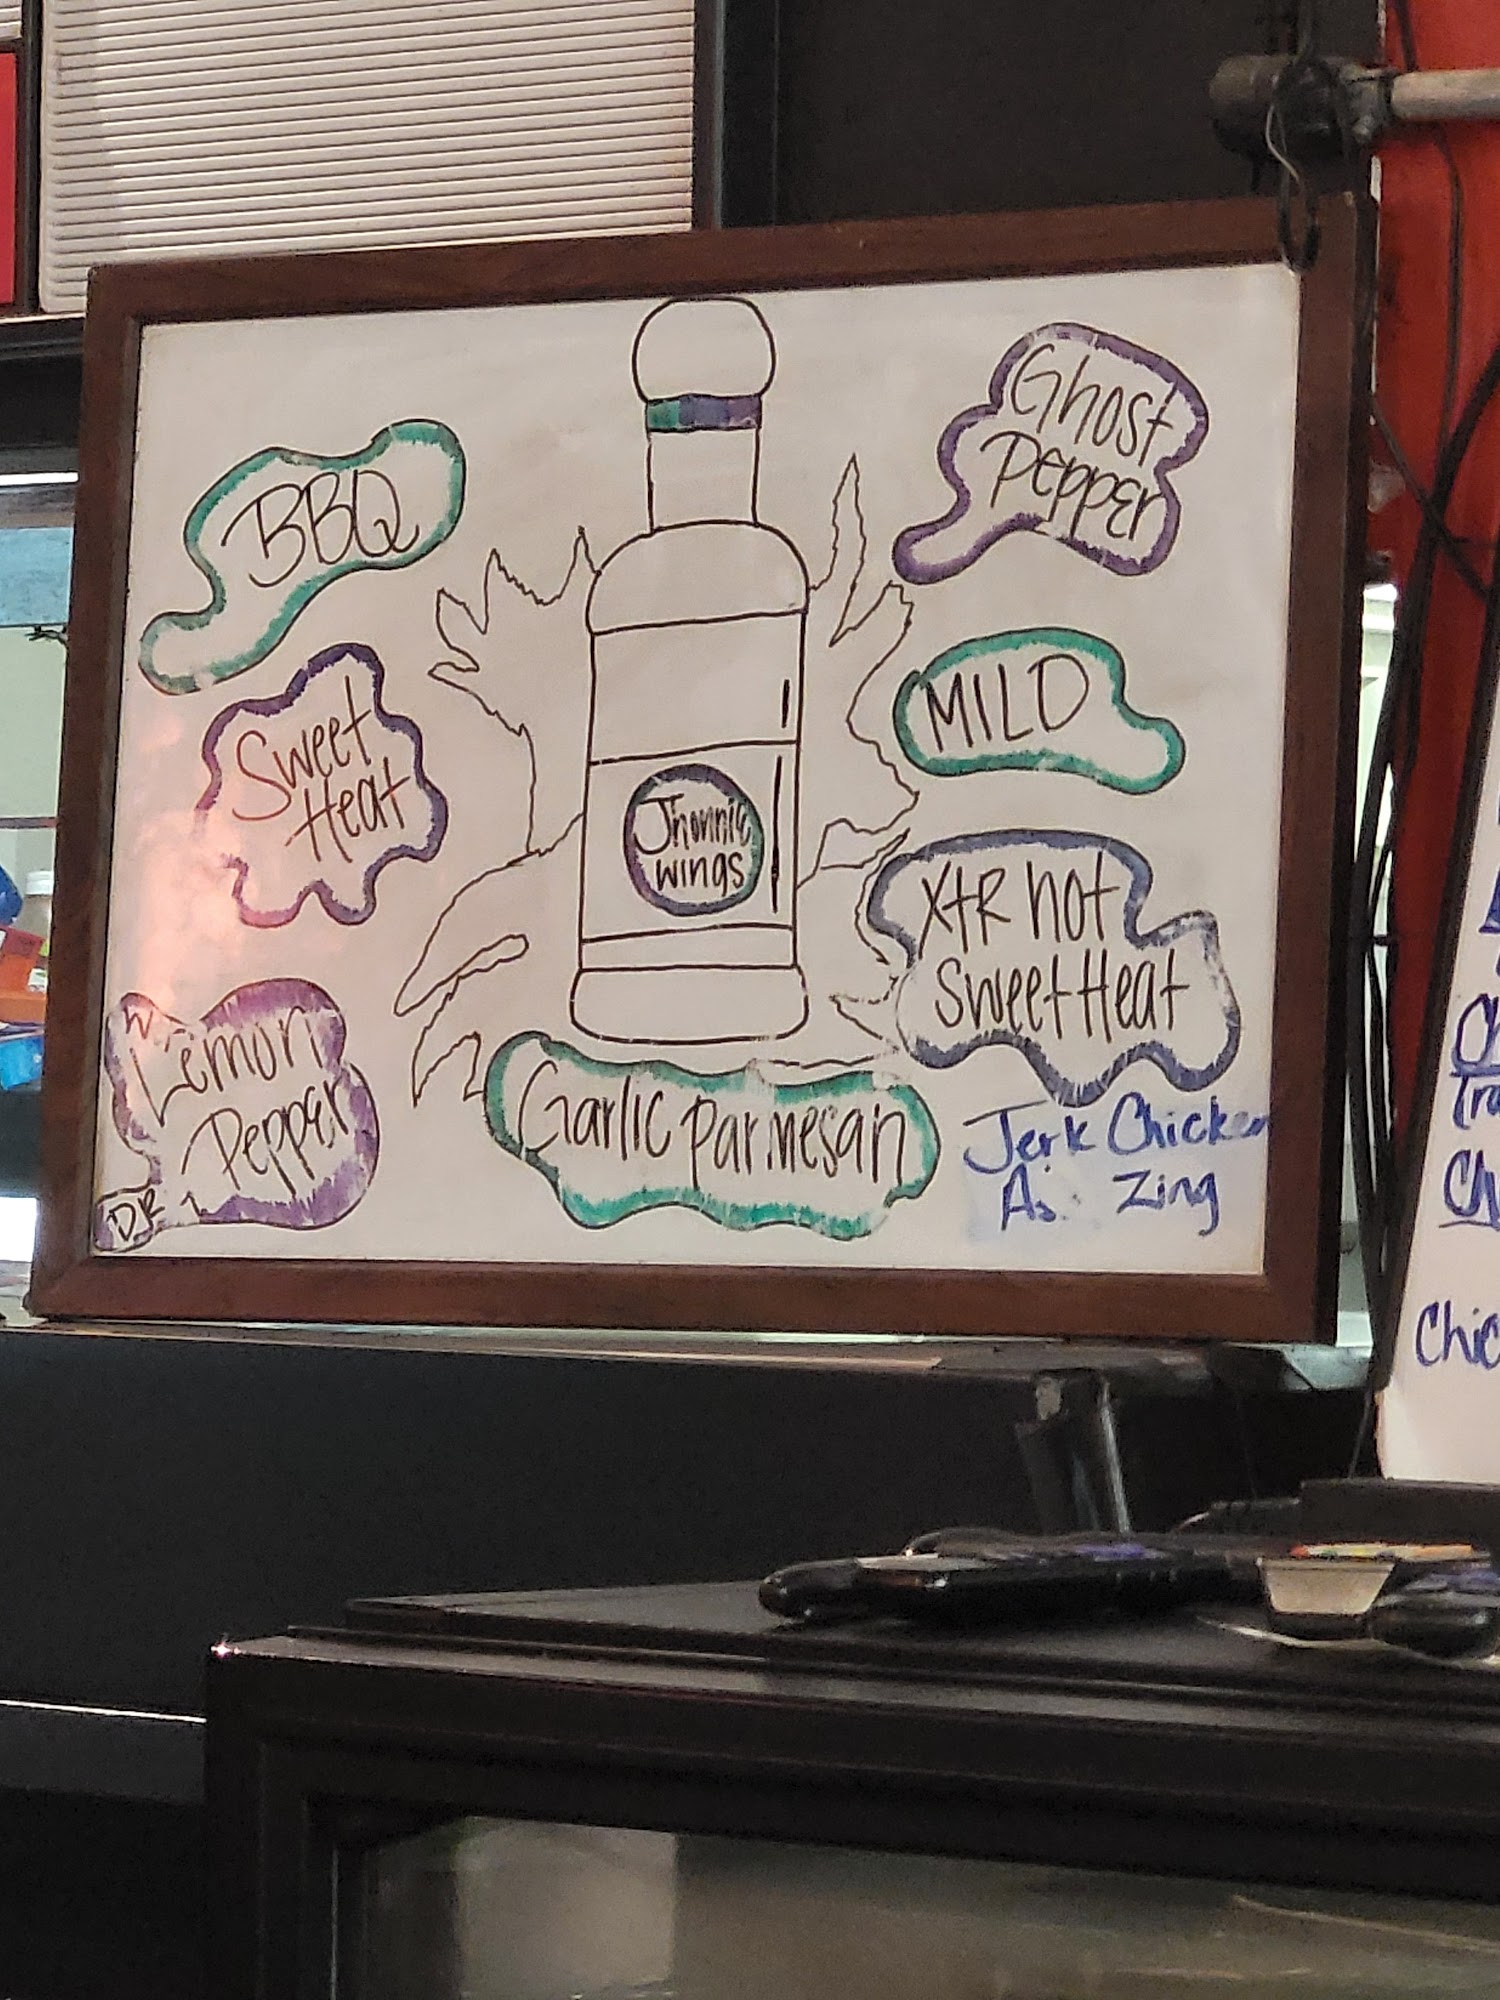 BBQ
Sweet
Heat
Lemon
Pepper
DR
Jhonnie
wings
Garlic parmesan
Ghost
Pepper
MILD
XtR hot
Sweet Heat
Jerk Chicken
Zing
Chic